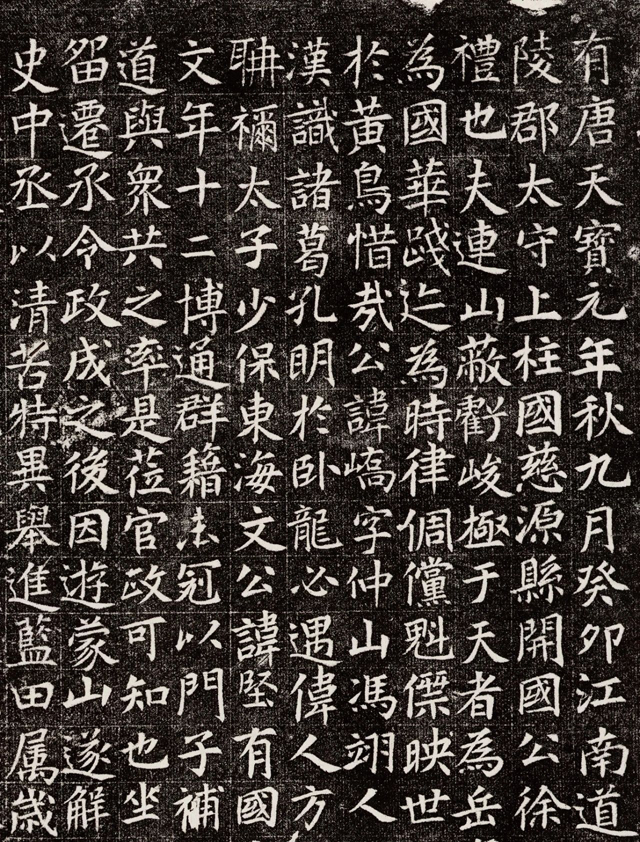 有唐天寶元年秋九月癸卯江南道
陵郡太守上柱國慈源縣開國公徐
禮也夫連山蔽虧峻極于天者為岳
為國華踐迹為時律倜儻魁傑映世
於黃鳥惜哉公諱嶠字仲山馮翊人
漢識諸葛孔明於卧龍必遇偉人方
聃禰太子少保東海文公諱堅有國
文年十二博通群籍未冠以門子補
道與眾共之率是莅官政可知也坐
留遷丞令政成之後因遊蒙山遂解
史中丞以清苦特異舉進藍田属歲